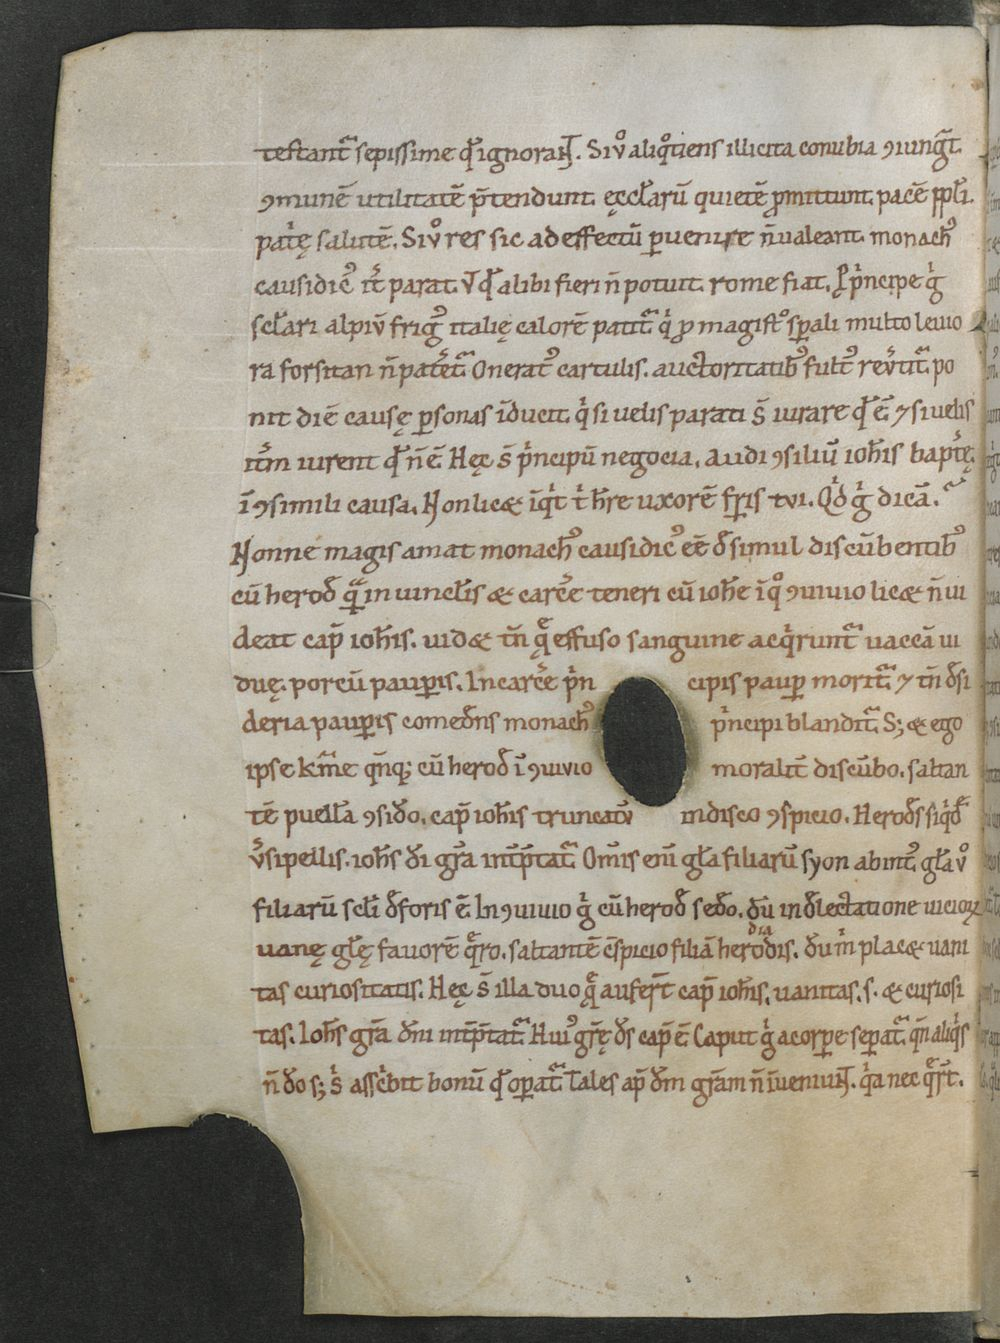 testant᷑ sepissime qđ ignoraNT. Si v̊ aliq̊tiens illicita conubia ꝯiung̃t.
ꝯmunē utilitatē p̄tendunt. ęccl̄arū quietē ꝓmittunt. pacē ppl̄i.
pat̓ę salutē. Si v̊ res sic ad effectū ꝑuenire n̄ ualeant. monach᷒
causidic᷒ it̓ parat. V̓ qđ alibi fieri n̄ potuit. rome fiat. P̱ p̓ncipe g̓
scl̄ari alpiū frig᷒ italię calorē patit᷑ q̓ ꝓ magist̊ sp̄ali multo leuio
ra forsitan n̄ patet᷑. Onerat᷒ cartulis. auctoritatib᷒ fult᷒ reu̓tit᷑ po
nit diē causę ꝑsonas īducit. q̓ si uelis parati s̄ iurare qđ ē ⁊ si uelis
it̓m iurent qđ n̄ ē. Hęc s̄ p̓ncipū negocia. Audi ꝯsiliū ioh̄is bapt̓ę.
ī ꝯsimili causa. Non licet īq̓t t̓ h̄re uxorē fr̄is tui. Qd̓ g̓ dicā.
Nonne magis amat monach᷒ causidic᷒ eē đ simul discūbentib᷒
cū herođ quā in uincl̄is & carc̓e teneri cū ioh̄e ī q̊ ꝯuiuio licet n̄ ui
deat cap̄ ioh̄is. uidet tn̄ quę effuso sanguine acq̓runt᷑ uaccā ui
duę. porcū pauꝑis. In carc̓e p̓n cipis pauꝑ morit᷑ ⁊ tn̄ đsi
deria pauꝑis comeđns monach᷒ p̓ncipi blandit᷑ S; & ego
ipse km̄e qn̄q; cū herođ ī ꝯuiuio moralit̓ discūbo. saltan
tē puellā ꝯsiđo. cap̄ ioh̄is truncatū in disco ꝯspicio. Herođs siq̓đ
v̓sipellis. ioh̄s đi gr̄a int̓p̄tat᷑ Om̄is enī gl̄a filiarū syon ab int᷒ gl̄a v̊
filiarū scl̄i đforis ē. In ꝯuiuio g̓ cū herođ seđo. đū in đlectatione uicioꝝ
uanę gl̄ę fauorē quęro. saltantē ꝯspicio filiā herodiadis. đū m̓ placet uani
tas curiositatis. Hęc s̄ illa duo quę aufer̄t cap̄ ioh̄is. uanitas. s. & curiosi
tas. Ioh̄s gr̄a đni int̓p̄tat᷑ Hui᷒ gr̄ę đs cap̄ ē. Caput g̓ a corꝑe seꝑat᷑ qn̄ aliq̓s
n̄ đo s; s̓ ascrībit bonū qđ oꝑat᷑ Tales ap̄ đm gr̄am n̄ īueniuNT. q̓a nec quęr̄t.